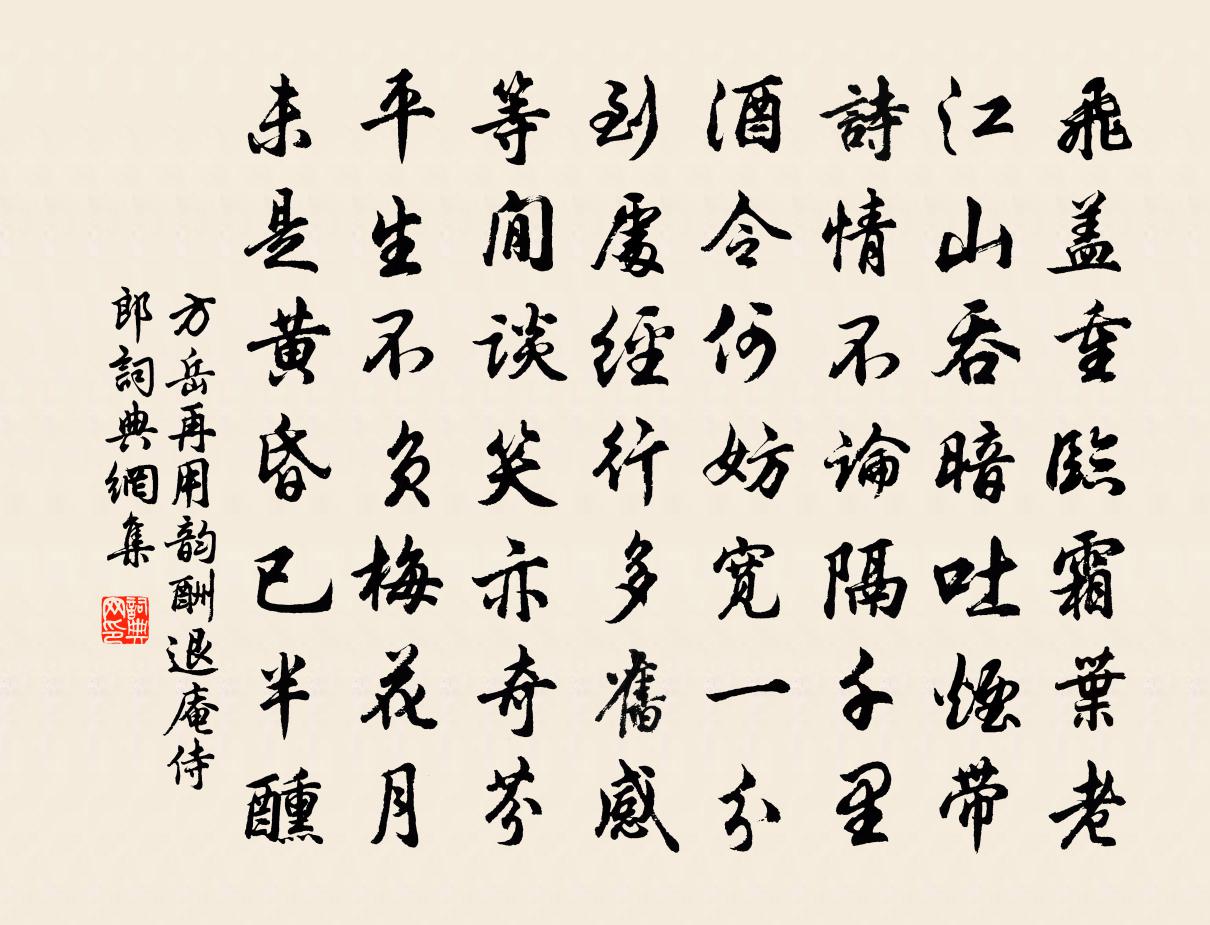 飛蓋重臨霜葉老
江山吞暗吐煙帶
詩情不論隔千里
酒令何妨寬一分
到處經行多舊感
等閒談笑亦奇芬
平生不負梅花月
未是黃昏已半醺
方岳再用韵酬退庵侍
郎詞典網集
詞典
网印